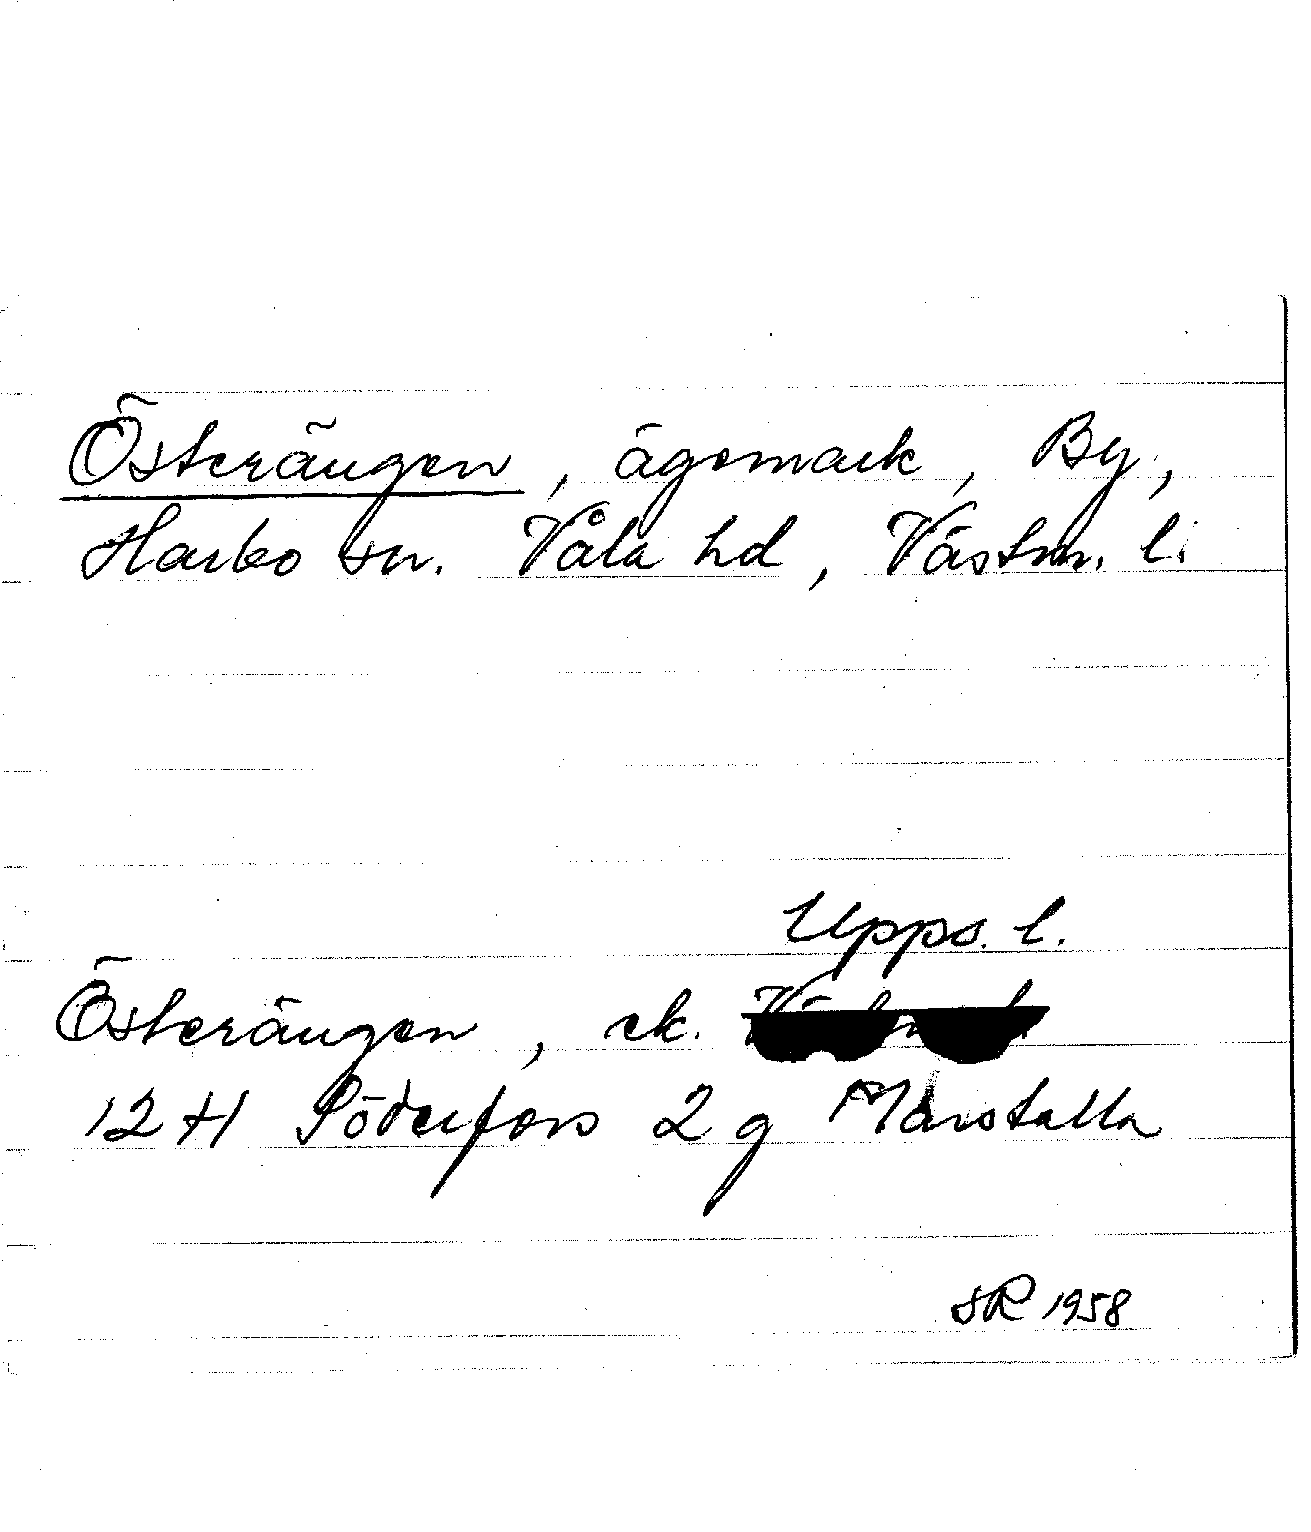 Österängen, ägomark, By,
Harbo sn. Våla hd, Västm. l.
Upps. l.
Österängen, ek.
12 H Söderfors 2 g Mårstalla
SR 1958